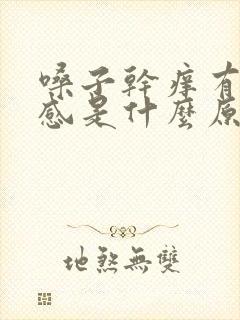 嗓子幹癢有
感是什麼原
地煞無雙